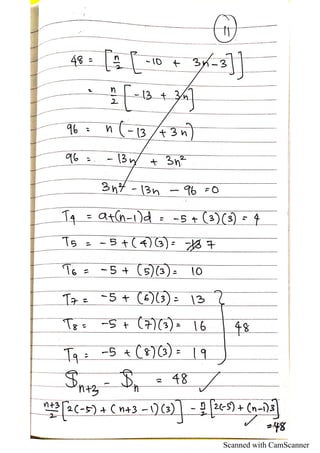 11
48 = [n/2 [-10 + 3n-3]]
= n/2 [-13 + 3n]
96 = n (-13 + 3n)
96 = -13n + 3n²
3n² - 13n - 96 = 0
T4 = a+(n-1)d = -5 + (3)(3) = 4
T5 = -5 + (4)(3) = 7
T6 = -5 + (5)(3) = 10
T7 = -5 + (6)(3) = 13
T8 = -5 + (7)(3) = 16 } 48
T9 = -5 + (8)(3) = 19
Sn+3 - Sn = 48 ✓
n+3/2 [2(-5) + (n+3-1)(3)] - n/2 [2(-5) + (n-1)3]
✓ = 48
Scanned with CamScanner